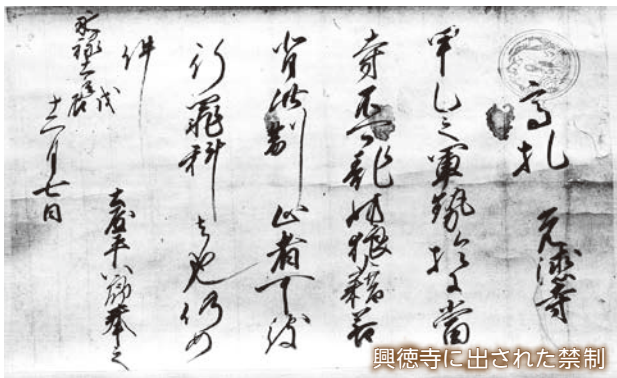 高札 寺
甲乙之軍勢於當
寺不可乱妨狼藉若
背此制止者可被
行罪科者也仍如
件
永禄十一年戊辰
十二月七日 土屋平八郎奉之
興徳寺に出された禁制